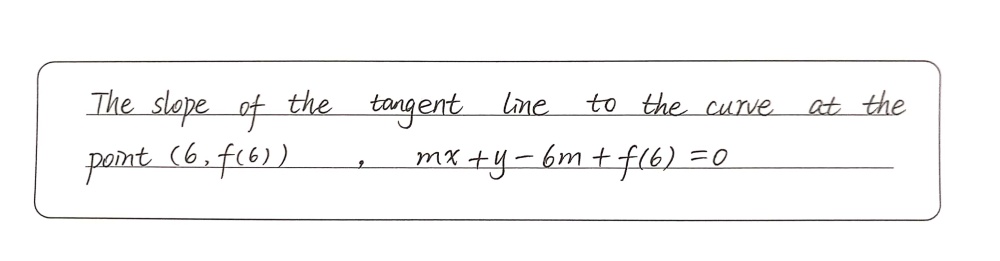 The slope of the tangent line to the curve at the
point (6, f(6)) , mx + y - 6m + f(6) = 0